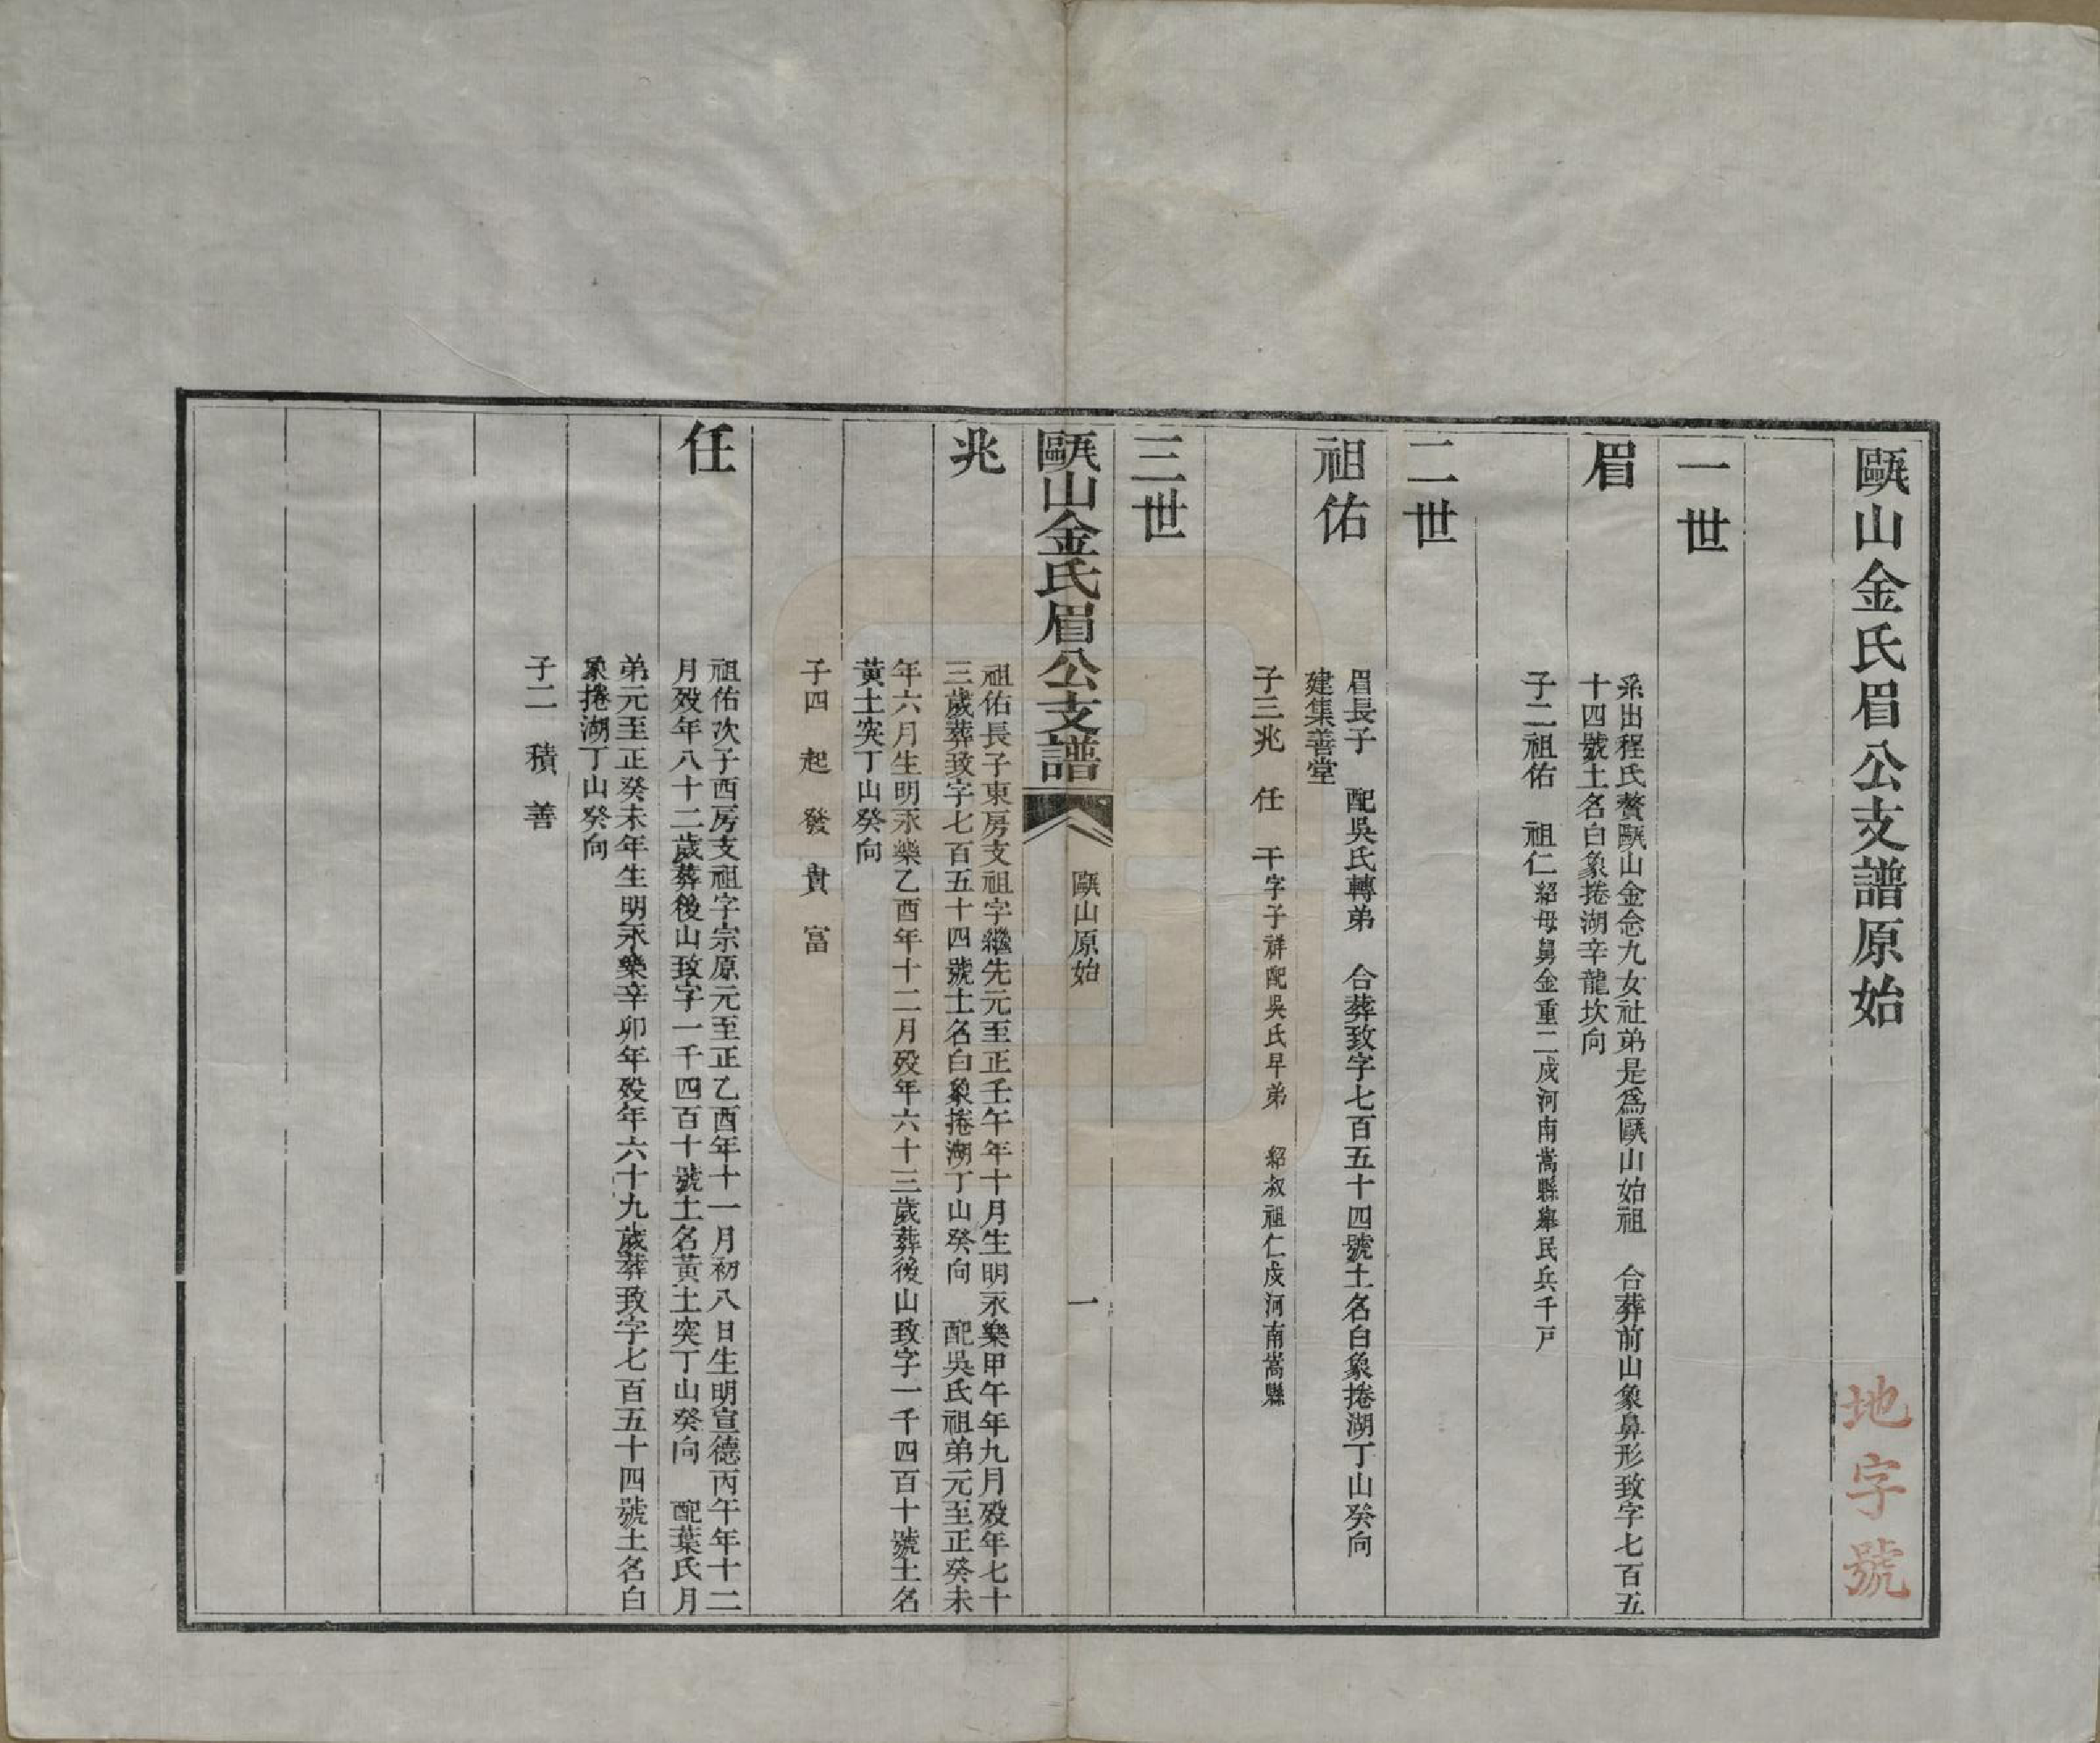 甌山金氏眉公支譜原始
地字號
一世
眉
系出程氏贅甌山金念九女社弟是爲甌山始祖　合葬前山象鼻形致字七百五
十四號土名白象捲湖辛龍坎向
子二祖佑　祖仁紹母舅金重二戍河南嵩縣舉民兵千戶
二世
祖佑
眉長子　配吳氏轉弟　合葬致字七百五十四號土名白象捲湖丁山癸向
建集善堂
子三兆　任　干字子祥配吳氏早弟　紹叔祖仁戍河南嵩縣
三世
甌山金氏眉公支譜
甌山原始
一
兆
祖佑長子東房支祖字繼先元至正壬午年十月生明永樂甲午年九月歿年七十
三歲葬致字七百五十四號土名白象捲湖丁山癸向　配吳氏祖弟元至正癸未
年六月生明永樂乙酉年十二月歿年六十三歲葬後山致字一千四百十號土名
黃土突丁山癸向
子四　起　發　貴　富
任
祖佑次子西房支祖字宗原元至正乙酉年十一月初八日生明宣德丙午年十二
月歿年八十二歲葬後山致字一千四百十號土名黃土突丁山癸向　配葉氏月
弟元至正癸未年生明永樂辛卯年歿年六十九歲葬致字七百五十四號土名白
象捲湖丁山癸向
子二　積　善